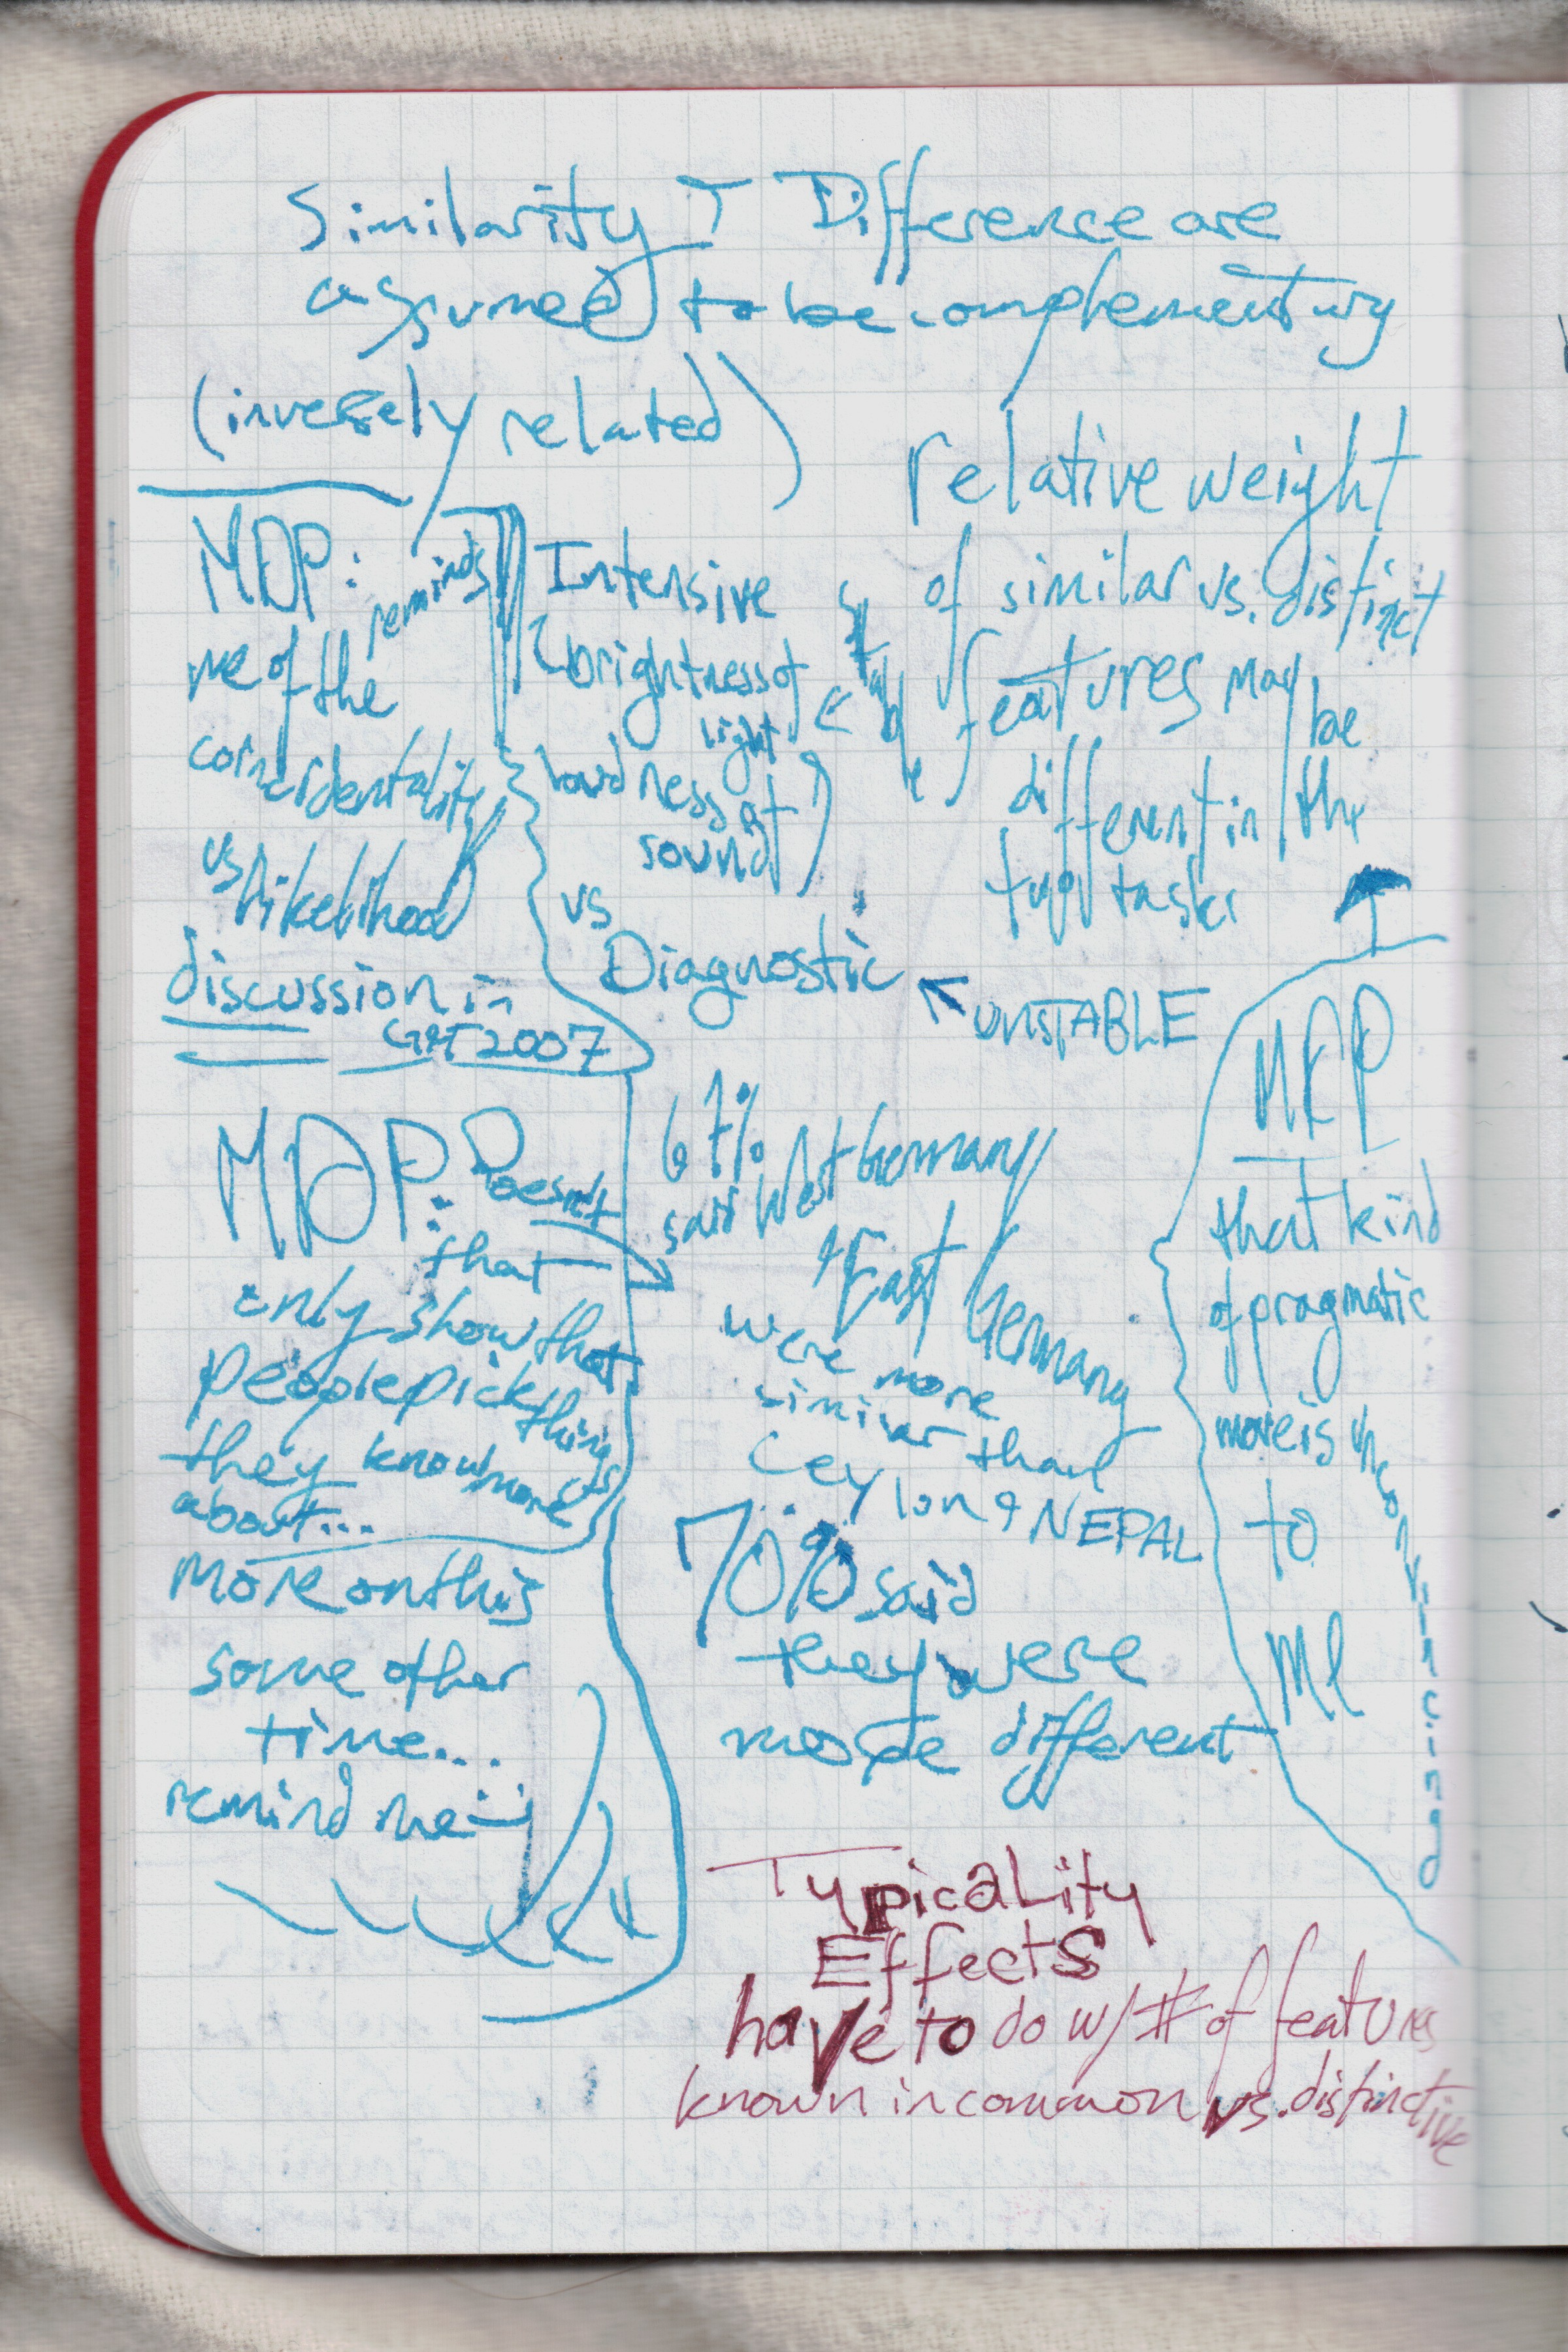 Similarity & Difference are
assumed to be complementary
(inversely related)
relative weight
of similar vs. distinct
features may
be
different in the
two tasks
MDP: reminds
me of the
coincidentality
vs likelihood
discussion in
G&T 2007
Intensive
(brightness of
light
loudness of
sound)
← stable
vs
Diagnostic
← UNSTABLE
MDP: Doesn't
that
only show that
people pick things
they know more
about...
More on this
some other
time...
remind me :)
67%
said West Germany
& East Germany
were more
similar than
Ceylon & NEPAL
70% said
they were
more different
MDP
that kind
of pragmatic
move is unconvincing
to
me
Typicality
Effects
have to do w/ # of features
known in common vs. distinctive